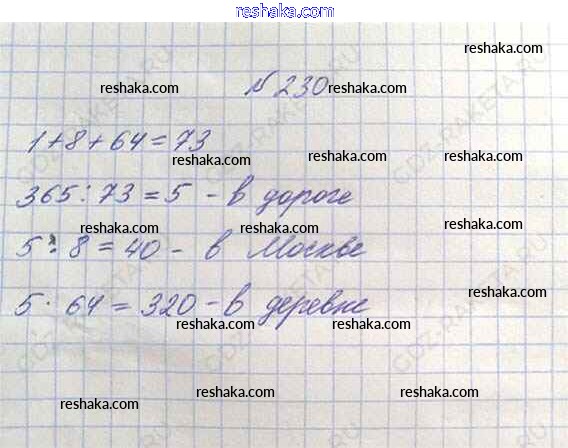 reshaka.com
reshaka.com
reshaka.com № 230 reshaka.com
1+8+64=73
reshaka.com reshaka.com
365:73=5 - в дороге
reshaka.com reshaka.com
5:8=40 - в Москве
reshaka.com
5·64=320 - в деревне
reshaka.com reshaka.com
reshaka.com reshaka.com reshaka.com
GDZ-RAKETA.RU